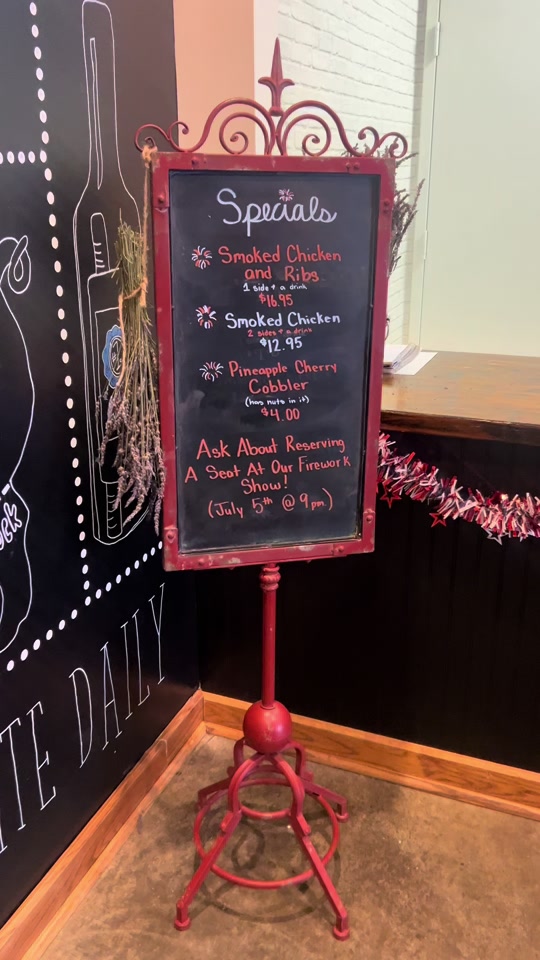 Specials
Smoked Chicken
and Ribs
1 side + a drink
$16.95
Smoked Chicken
2 sides + a drink
$12.95
Pineapple Cherry
Cobbler
(has nuts in it)
$4.00
Ask About Reserving
A Seat At Our Firework
Show!
(July 5th @ 9pm)
DAILY